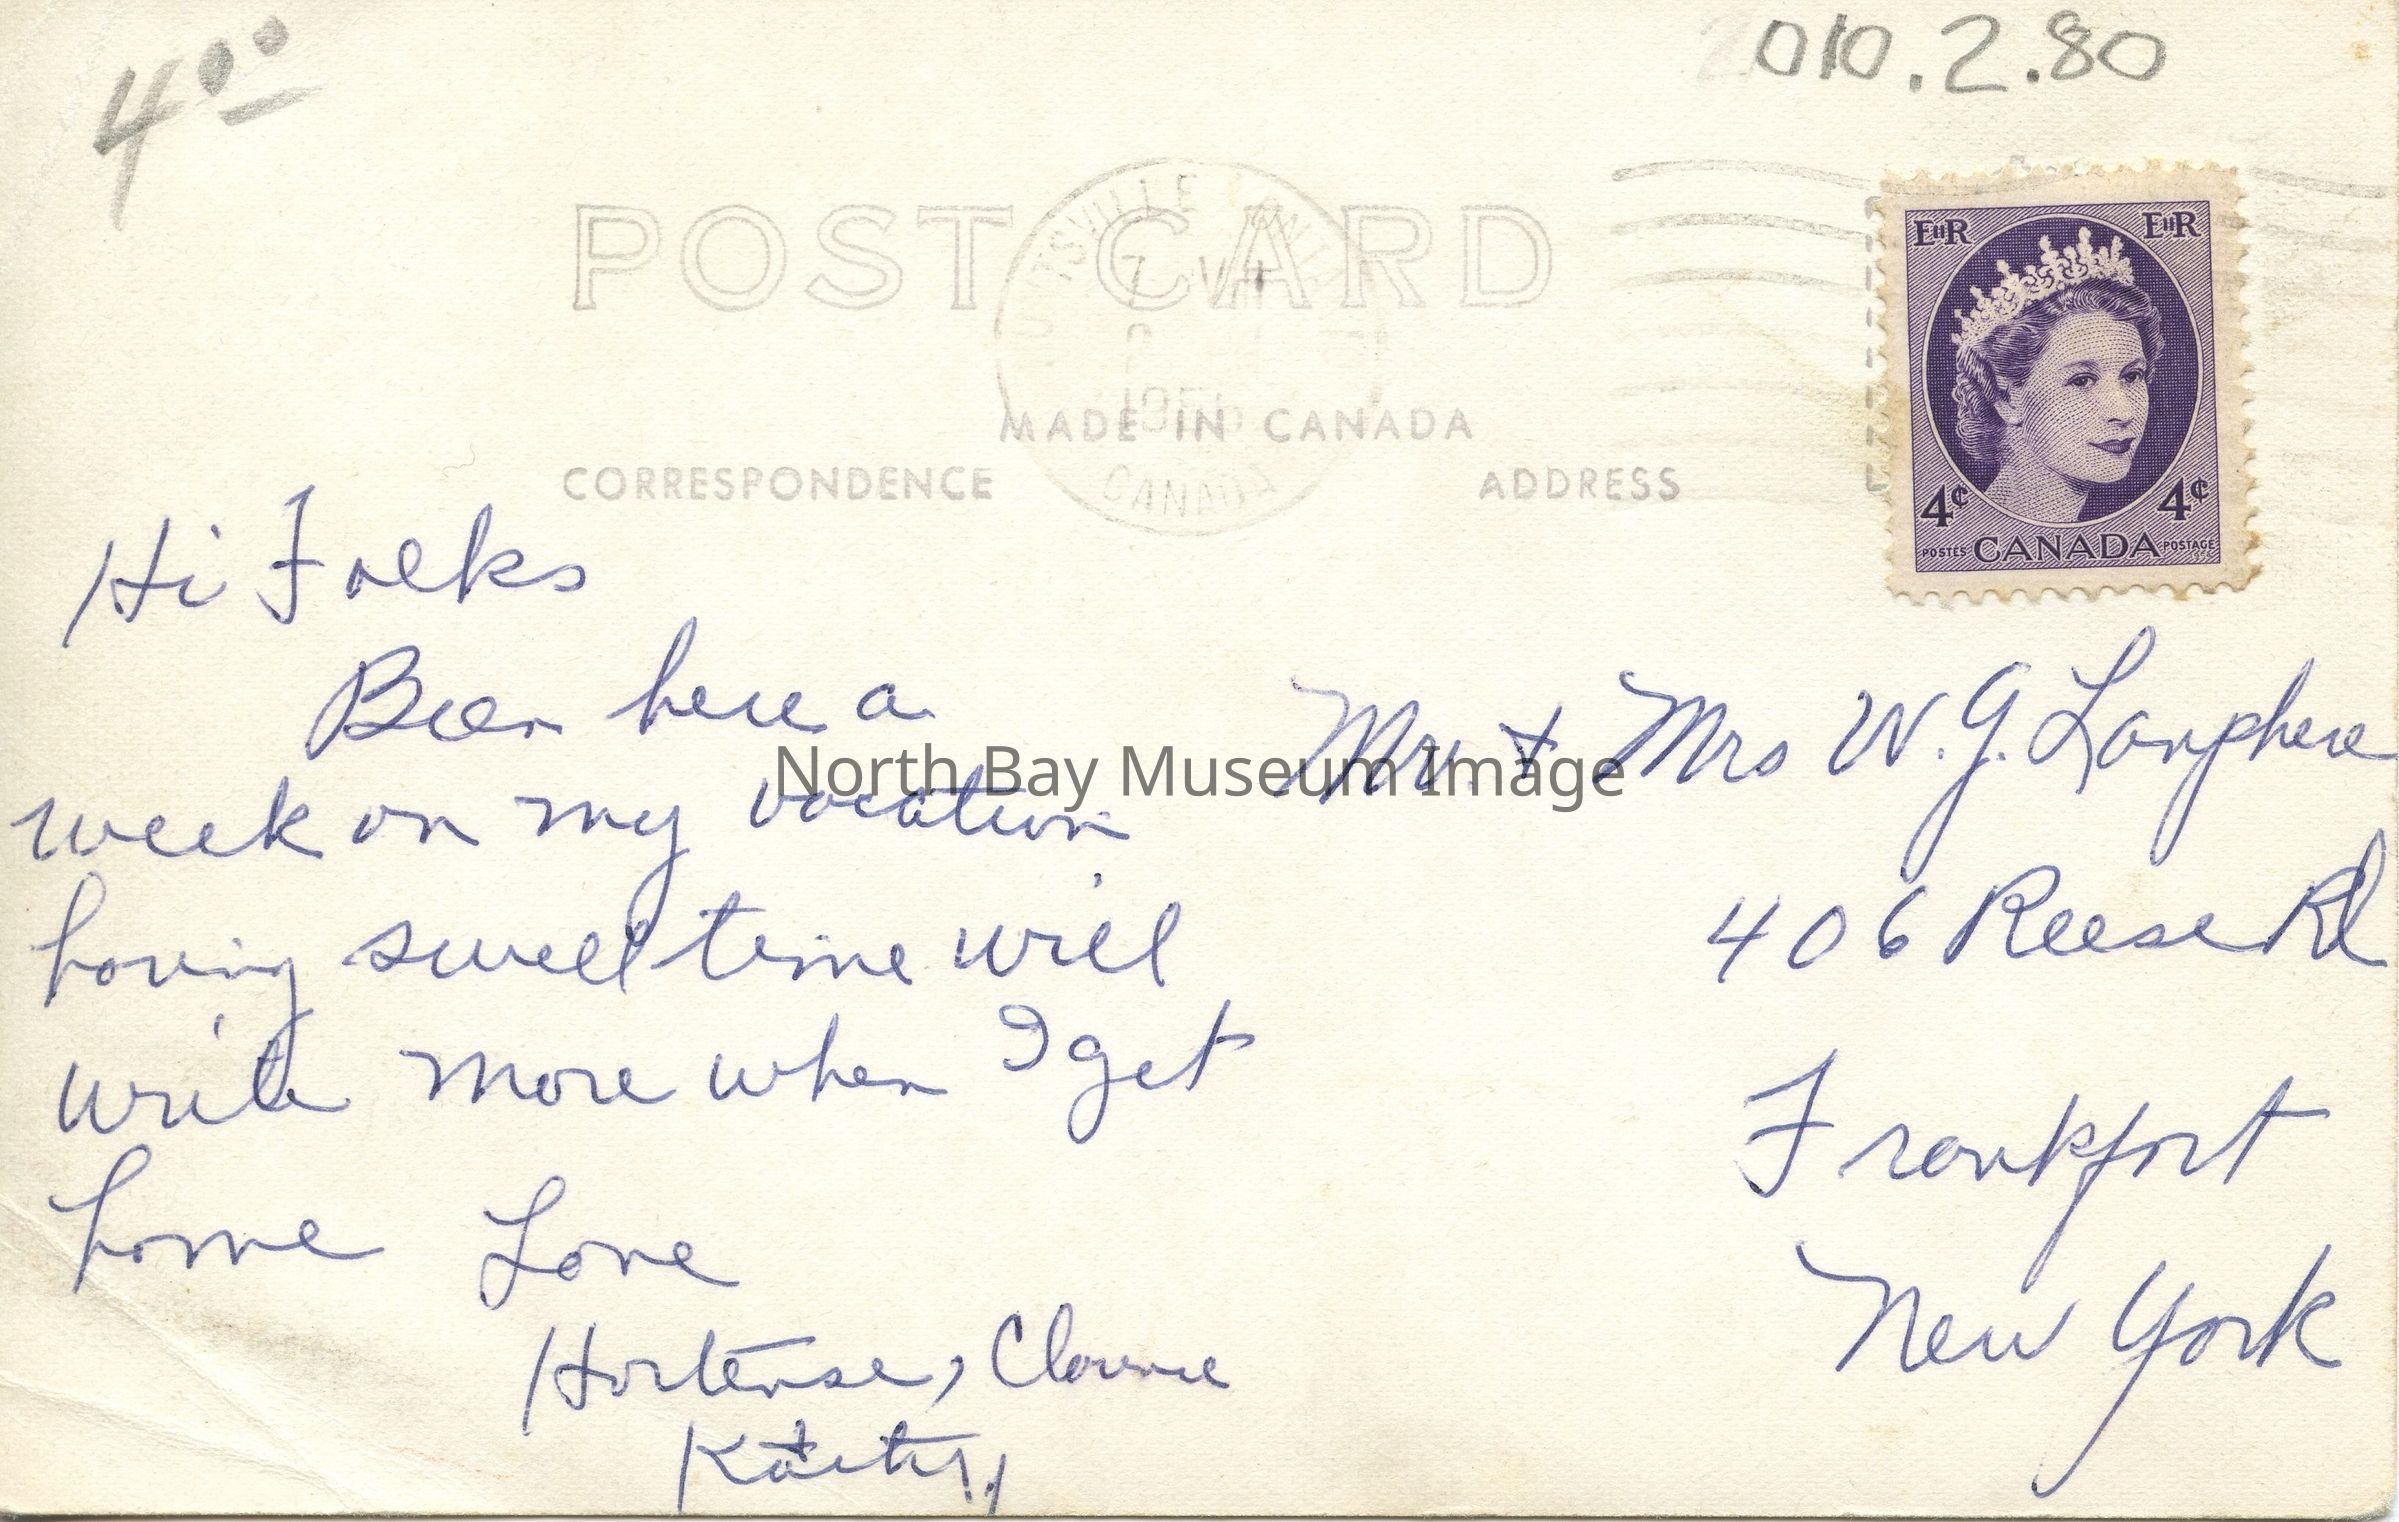 4.00
010.2.80
POST CARD
MADE IN CANADA
CORRESPONDENCE
ADDRESS
CANADA
EIIR EIIR
4¢ 4¢
POSTES CANADA POSTAGE
Hi Folks
Been here a
week on my vacation
having swell time will
write more when I get
home Love
Hortense, Clarence
North Bay Museum Image
Mr. + Mrs W. G. Lanphere
406 Reese Rd
Frankfort
New York